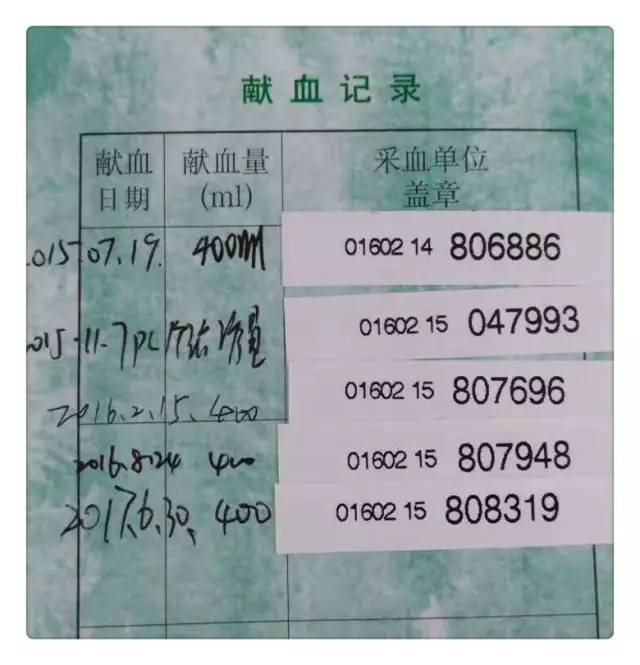 献血记录
献血日期 献血量(ml) 采血单位盖章
2015.07.19. 400ml 01602 14 806886
2015-11-7 PC 治疗量 01602 15 047993
2016.2.15. 400 01602 15 807696
2016.8.24 400 01602 15 807948
2017.6.30. 400 01602 15 808319